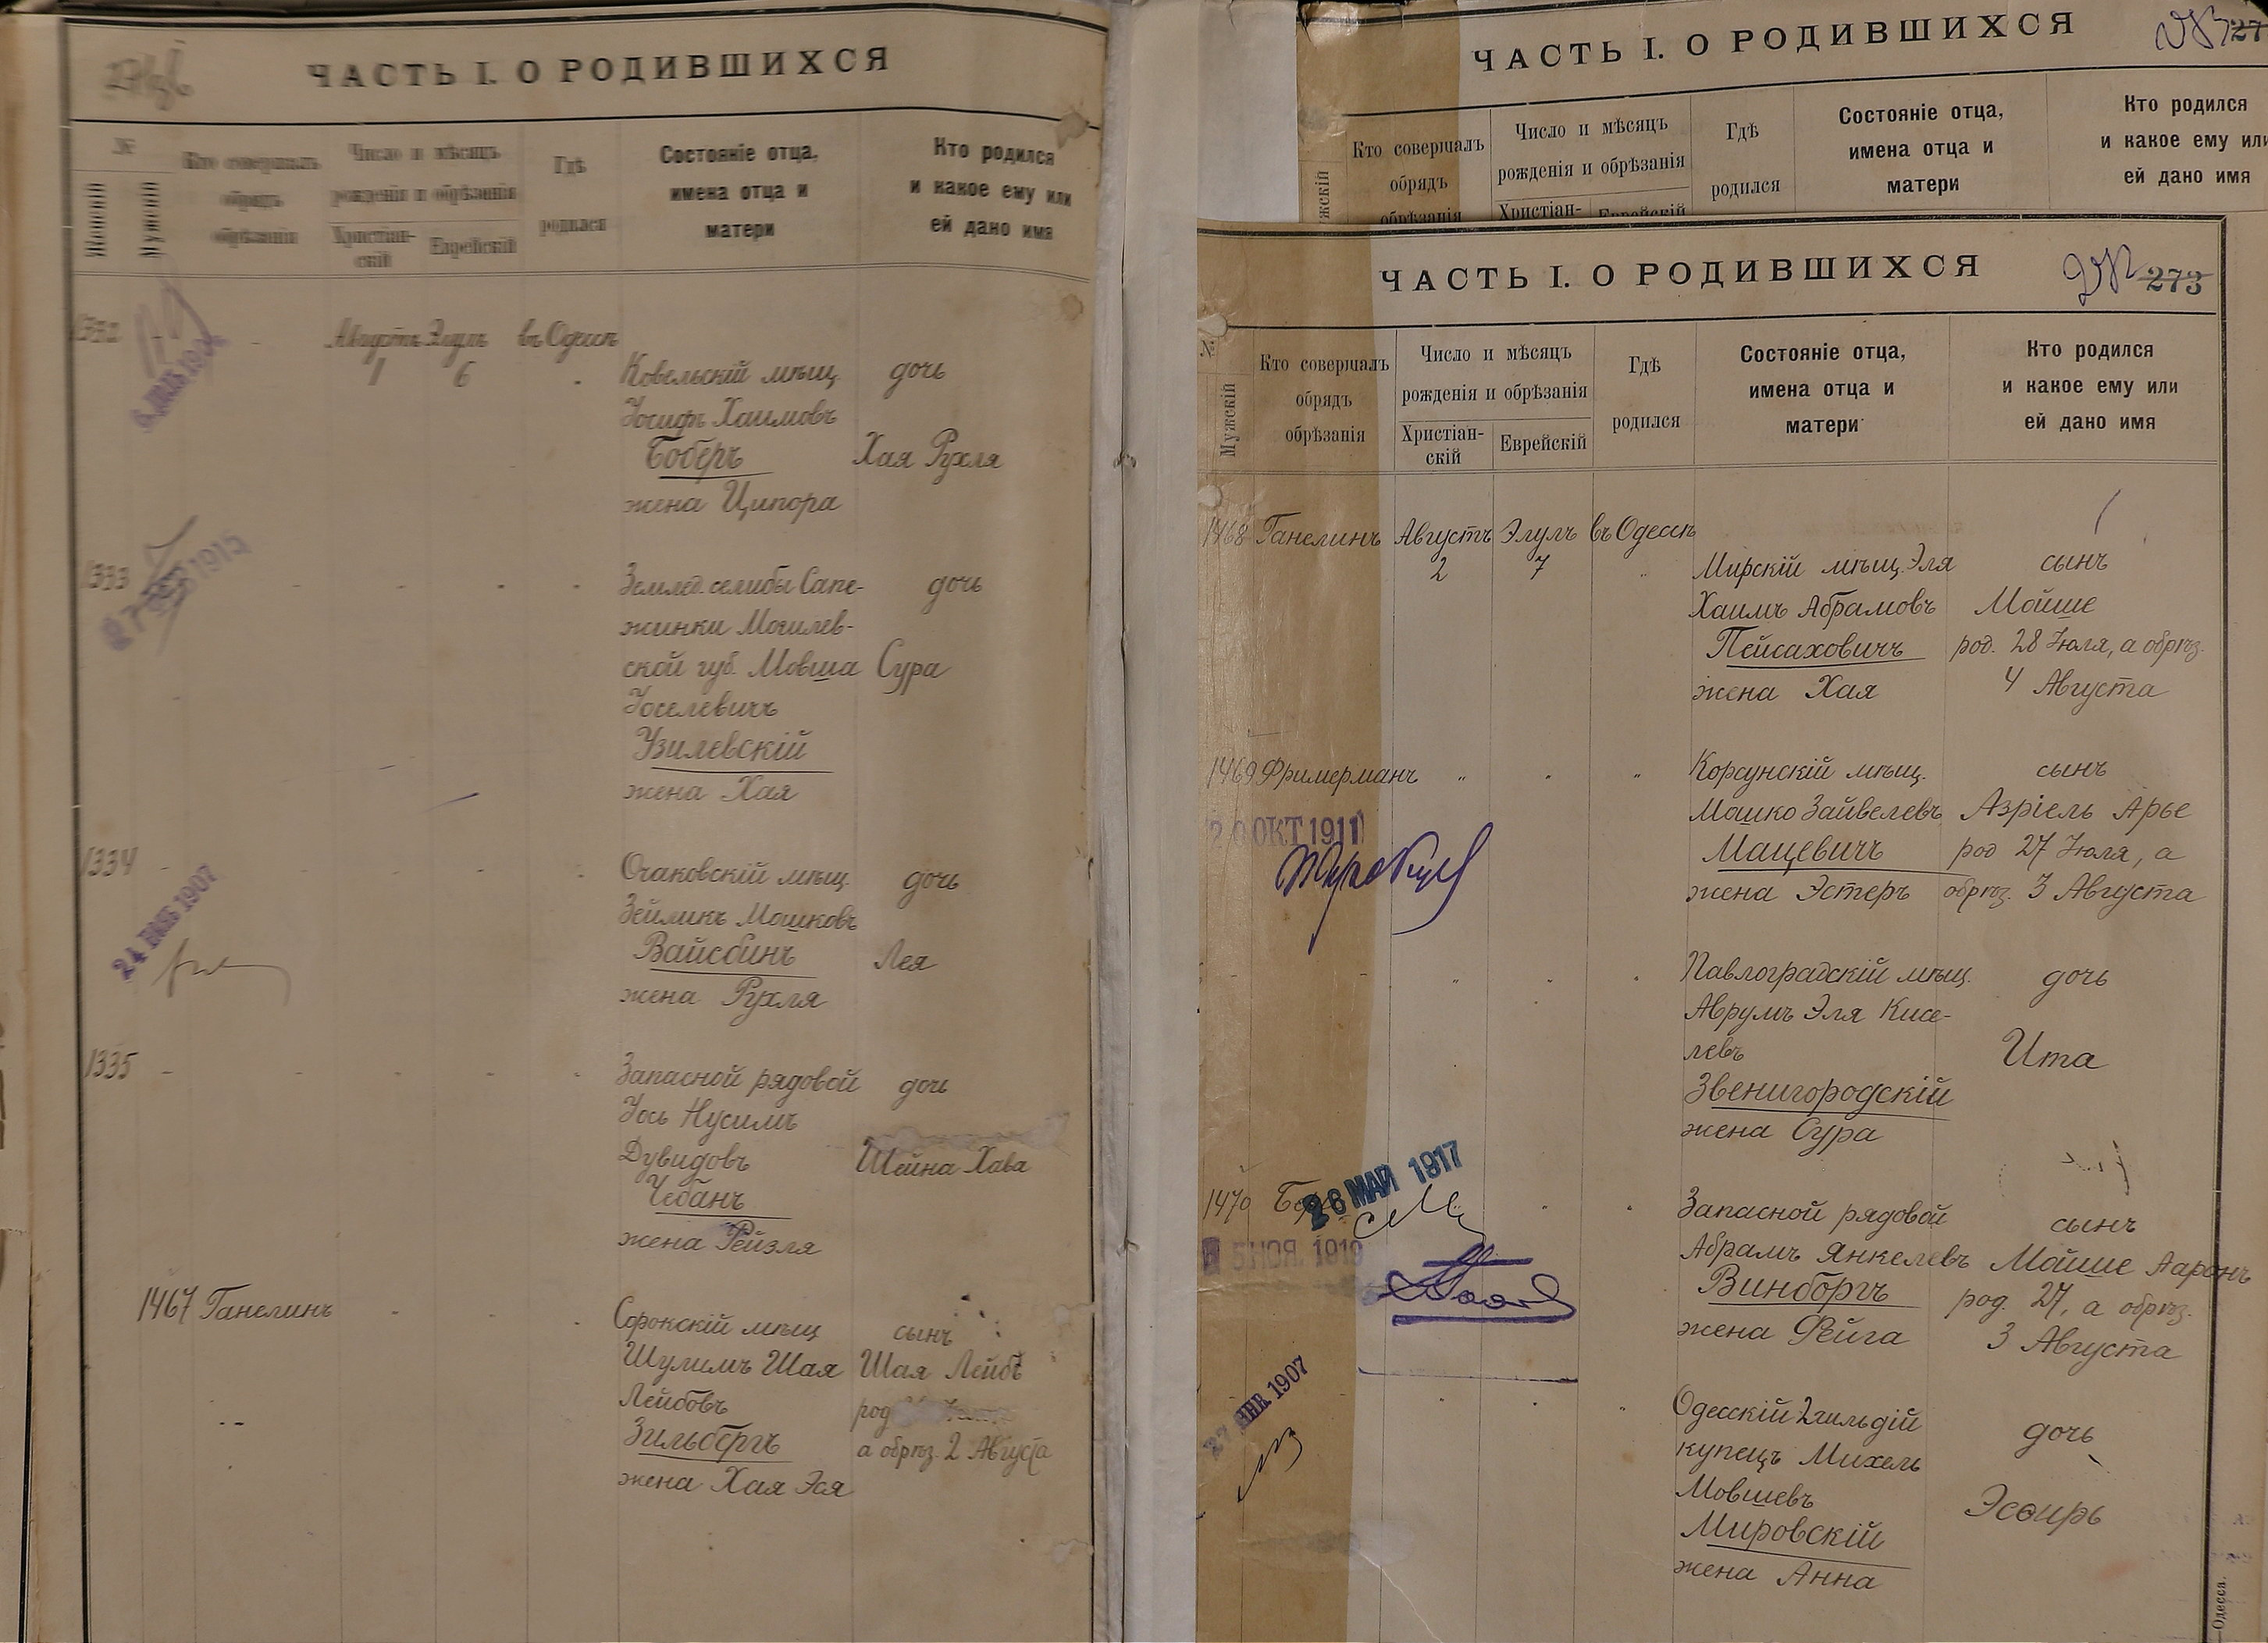 ЧАСТЬ I. О РОДИВШИХСЯ
№
Женскій
Мужскій
Кто совершалъ
обрядъ
обрѣзанія
Число и мѣсяцъ
рожденія и обрѣзанія
Христіан-
скій
Еврейскій
Гдѣ
родился
Состояніе отца,
имена отца и
матери
Кто родился
и какое ему или
ей дано имя
1332 Августъ Элулъ въ Одессѣ
1 6 Ковельскій мѣщ. дочь
Іосифъ Хаимовъ
Боберъ Хая Рухля
жена Ципора
1333 Землед. селибы Сапе- дочь
27 1915
жинки Могилев-
ской губ. Мовша Сура
Іоселевичъ
Узилевскій
жена Хая
1334 Очаковскій мѣщ. дочь
24 1907
Зейликъ Мошковъ
Вайсбинъ Лея
жена Рухля
1335 Запасной рядовой дочь
Іось Нусимъ
Дувидовъ Шейна Хава
Чебанъ
жена Рейзля
1467 Ганелинъ Сорокскій мѣщ сынъ
Шулимъ Шая Шая Лейбъ
Лейбовъ род
Зильбергъ а обрѣз. 2 Августа
жена Хая Эся
ЧАСТЬ I. О РОДИВШИХСЯ 27
жскій
Кто совершалъ
обрядъ
обрѣзанія
Число и мѣсяцъ
рожденія и обрѣзанія
Христіан-
Еврейскій
Гдѣ
родился
Состояніе отца,
имена отца и
матери
Кто родился
и какое ему или
ей дано имя
ЧАСТЬ I. О РОДИВШИХСЯ 273
№
Мужскій
Кто совершалъ
обрядъ
обрѣзанія
Число и мѣсяцъ
рожденія и обрѣзанія
Христіан-
скій
Еврейскій
Гдѣ
родился
Состояніе отца,
имена отца и
матери
Кто родился
и какое ему или
ей дано имя
1468 Ганелинъ Августъ Элулъ въ Одессѣ
2 7 Мирскій мѣщ. Эля сынъ
Хаимъ Абрамовъ Мойше
Пейсаховичъ род. 28 Іюля, а обрѣз.
жена Хая 4 Августа
1469 Фримерманъ " " " Корсунскій мѣщ. сынъ
Мошко Зайвелевъ Азріель Арье
20 ОКТ 1911
Мацевичъ род 27 Іюля, а
жена Эстеръ обрѣз. 3 Августа
Павлоградскій мѣщ. дочь
Аврумъ Эля Кисе-
левъ Ита
Звенигородскій
жена Сура
26 МАЙ 1917
1470 Запасной рядовой сынъ
5 НОЯ. 1919
Абрамъ Янкелевъ Мойше Ааронъ
Винборгъ род. 27, а обрѣз.
жена Фейга 3 Августа
27 ЯНВ 1907
Одесскій 2 гильдій дочь
купецъ Михель
Мовшевъ Эсѳирь
Мировскій
жена Анна
Одесса.